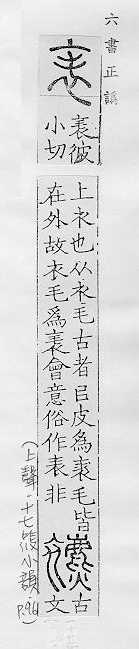 六書正譌
𧘝彼
小切
上衣也从衣毛古者㠯皮爲裘毛皆
在外故衣毛爲𧘝會意俗作表非
古
文
(上聲·十七筱小韻 P.94)